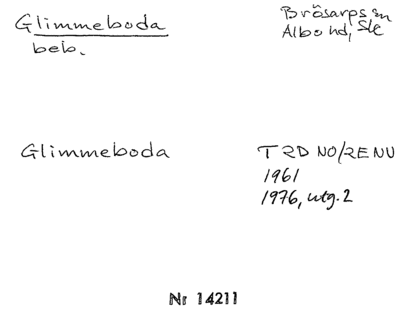 Glimmeboda
beb.
Brösarps sn
Albo hd, Ske
Glimmeboda
TRD NO/RENU
1961
1976, utg. 2
Nr 14211